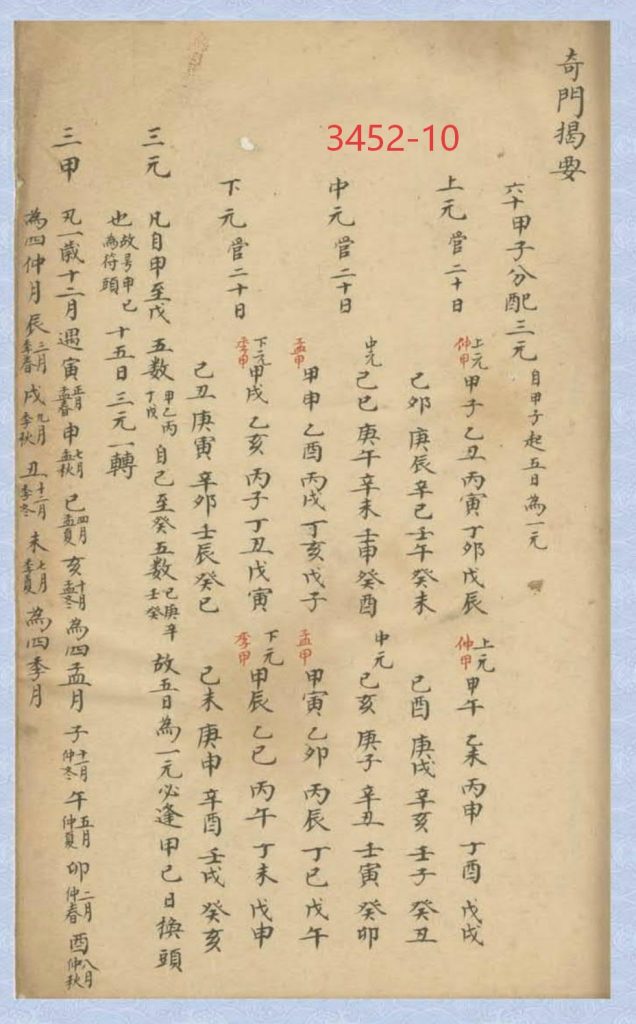 3452-10
奇門揭要
六十甲子分配三元 自甲子起五日為一元
上元管二十日 上元仲甲 甲子乙丑丙寅丁卯戊辰 上元仲甲 甲午乙未丙申丁酉戊戌
己卯庚辰辛巳壬午癸未 己酉庚戌辛亥壬子癸丑
中元管二十日 中元 己巳庚午辛未壬申癸酉 中元 己亥庚子辛丑壬寅癸卯
孟甲 甲申乙酉丙戌丁亥戊子 孟甲 甲寅乙卯丙辰丁巳戊午
下元管二十日 下元季甲 甲戌乙亥丙子丁丑戊寅 下元季甲 甲辰乙巳丙午丁未戊申
己丑庚寅辛卯壬辰癸巳 己未庚申辛酉壬戌癸亥
三元 凡自甲至戊五数 甲乙丙丁戊 自己至癸五数 己庚辛壬癸 故五日為一元必逢甲己日換頭
也 故号甲己為符頭 十五日三元一轉
三甲 凡一歲十二月遇寅 正月孟春 申 七月孟秋 巳 四月孟夏 亥 十月孟冬 為四孟月 子 十一月仲冬 午 五月仲夏 卯 二月仲春 酉 八月仲秋
為四仲月 辰 三月季春 戌 九月季秋 丑 十二月季冬 未 七月季夏 為四季月